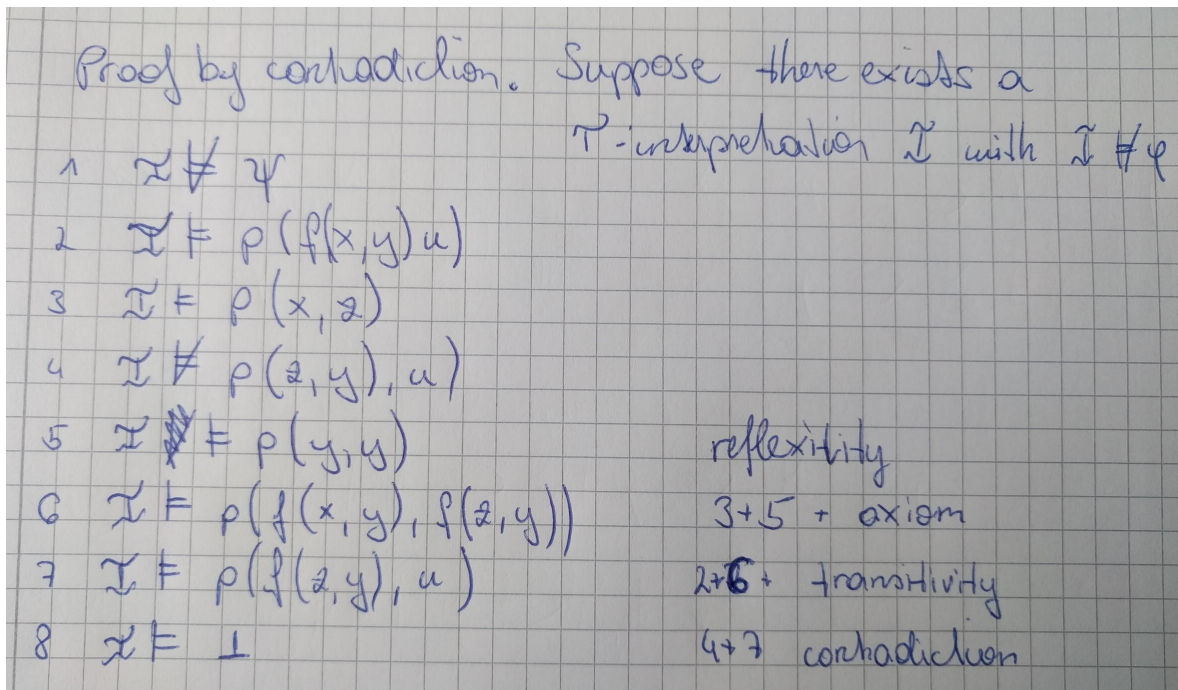 Proof by contradiction. Suppose there exists a
T-interpretation I with I ⊭ φ
1 I ⊭ ψ
2 I ⊨ p(f(x,y)u)
3 I ⊨ p(x,z)
4 I ⊭ p(z,y),u)
5 I ⊨ p(y,y) reflexitity
6 I ⊨ p(f(x,y),f(z,y)) 3+5 + axiom
7 I ⊨ p(f(z,y),u) 2+6+ transitivity
8 I ⊨ ⊥ 4+7 contradiction